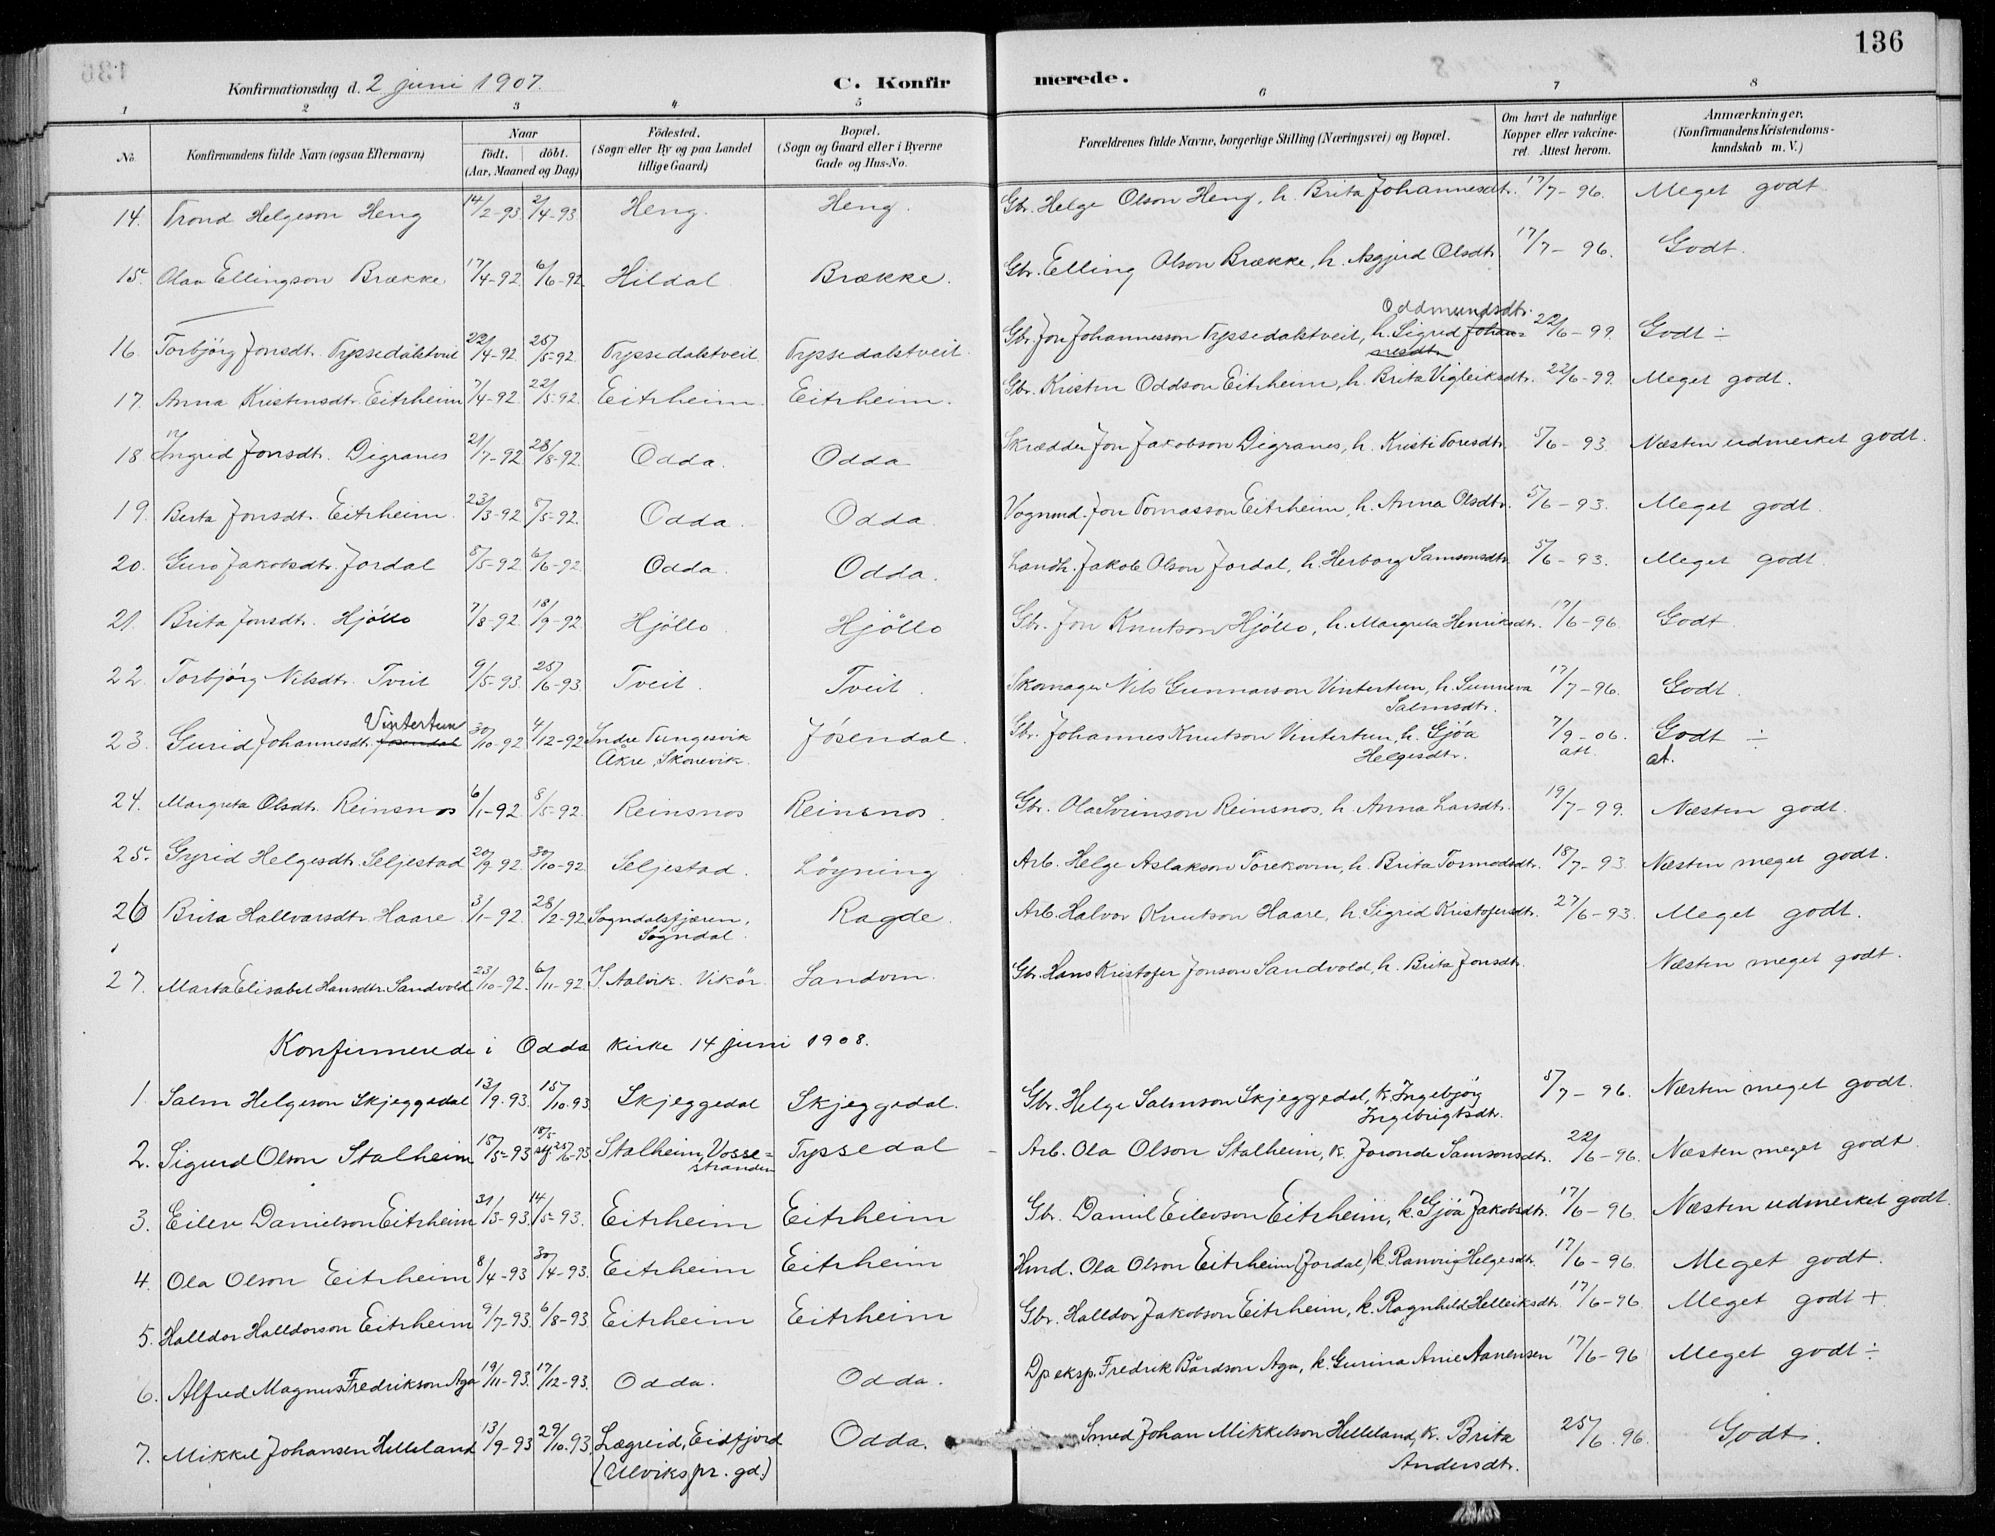 136
Konfirmationsdag d. 2 juni 1907.
C. Konfirmerede.
1 2 3 4 5 6 7 8
No. Konfirmandens fulde Navn (ogsaa Efternavn) Naar født. døbt. (Aar, Maaned og Dag) Fødested. (Sogn eller By og paa Landet tillige Gaard) Bopæl. (Sogn og Gaard eller i Byerne Gade og Hus-No. Forældrenes fulde Navne, borgerlige Stilling (Næringsvei) og Bopæl. Om havt de naturlige Kopper eller vakcineret. Attest herom. Anmærkninger. (Konfirmandens Kristendomskundskab m. V.)
14. Trond Helgeson Heng 14/2-93 2/4-93 Heng. Heng. Gbr. Helge Olson Heng, h. Brita Johannesdtr. 17/7-96. Meget godt
15. Olav Ellingson Brække 17/4-92 6/6-92 Hildal Brække. Gbr. Elling Olson Brække, h. Asgjerd Olsdtr. 17/7-96. Godt.
16. Torbjörg Jonsdtr. Tyssedalstveit 22/4-92 25/5-92 Tyssedalstveit Tyssedalstveit. Gbr. Jon Johannesson Tyssedalstveit, h. Sigrid Johannesdtr. Oddmundsdtr. 22/6-99. Godt ÷
17. Anna Kristensdtr. Eitrheim 7/4-92 22/5-92 Eitrheim. Eitrheim. Gbr. Kristen Oddson Eitrheim, h. Brita Vigleiksdtr. 22/6-99. Meget godt.
18. Ingrid Jonsdtr. Digranes 21/7-92 28/8-92 Odda. Odda Skrædder Jon Jakobson Digranes, h. Kristi Toresdtr. 5/6-93. Næsten udmerket godt.
19. Berta Jonsdt. Eitrheim. 23/3-92 5/5-92. Odda. Odda. Vognmd. Jon Tomasson Eitrheim, h. Anna Olsdtr. 5/6-93. Meget godt.
20. Guro Jakobsdtr. Jordal 5/5-92 6/6-92. Odda. Odda. Landh. Jakob Olson Jordal, h. Herborg Samsonsdtr. 5/6-93. Meget godt
21. Brita Jonsdtr. Hjöllo 7/8-92 18/9-92 Hjöllo Hjöllo Gbr. Jon Knutson Hjöllo, h. Margreta Henriksdtr. 17/6-96. Godt
22. Torbjörg Nilsdtr. Tveit 9/5-93. 25/6-93. Tveit. Tveit. Skomager Nils Gunnarson Vintertun, h. Sunneva Salmsdtr. 17/7-96. Godt.
23. Gurid Johannesdt. Jösendal Vintertun 30/10-92 4/12-92 Indre Tungesvik Åkre, Skonevik. Jösendal. Gbr. Johannes Knutson Vintertun, h. Gjöa Helgesdtr. 7/9-06. att. Godt ÷ at.
24. Margreta Olsdtr. Reinsnos 6/1-92 8/5-92. Reinsnos Reinsnos. Gbr. Ola Sveinson Reinsnos, h. Anna Larsdtr. 19/7-99. Næsten godt.
25. Gyrid Helgesdtr. Seljestad 20/9-92. 30/10-92 Seljestad. Löyning Arb. Helge Aslakson Torekovn, h. Brita Tormodsdtr. 18/7-93 Næsten meget godt.
26 Brita Hallvarsdtr. Haare 3/1-92 28/2-92 Sogndalsfjæren, Sogndal. Ragde. Arb. Halvor Knutson Haare, h. Sigrid Kristofersdtr. 27/6-93. Meget godt.
27. Marta Elisabet Hansdtr. Sandvold 23/10-92. 6/11-92 I. Aalvik. Vikör. Sandvin. Gbr. Hans Kristofer Jonson Sandvold, h. Brita Jonsdtr. Næsten meget godt.
Konfirmerede i Odda kirke 14 juni 1908.
1. Salm Helgeson Skjeggedal 13/9-93. 15/10-93 Skjeggedal Skjeggedal. Gbr. Helge Salmson Skjeggedal, k. Ingebjörg Ingebrigtsdtr. 5/7-96. Næsten meget godt.
2. Sigurd Olson Stalheim 15/5-93 18/5 stf 25/6-93 Stalheim, Vossestranden Tyssedal Arb. Ola Olson Stalheim, k. Joronde Samsonsdtr. 22/6-96. Næsten meget godt
3. Eilev Danielson Eitrheim 31/3-93. 14/5-93. Eitrheim Eitrheim Gbr. Daniel Eilevson Eitrheim, k. Gjöa Jakobsdtr. 17/6-96. Næsten udmerket godt
4. Ola Olson Eitrheim 8/4-93 30/4-93. Eitrheim Eitrheim Hmd. Ola Olson Eitrheim (Jordal,) k. Ranveig Helgesdtr. 17/6-96. Meget godt.
5. Halldor Halldorson Eitrheim 9/7-93. 6/8-93 Eitrheim Eitrheim Gbr. Halldor Jakobson Eitrheim, k. Ragnhild Helleiksdtr. 17/6-96. Meget godt +
6. Alfred Magnus Fredrikson Aga 19/11-93. 17/12-93. Odda. Odda. Dpeksp. Fredrik Bårdson Aga, k. Gurina Anie Aanensen 17/6-96 Meget godt ÷
7. Mikkel Johansen Helleland 13/9-93 29/10-93. Lægreid, Eidfjord (Ulviks pr. gd.) Odda. Smed Johan Mikkelson Helleland, k. Brita Andersdtr. 25/6-96. Godt.